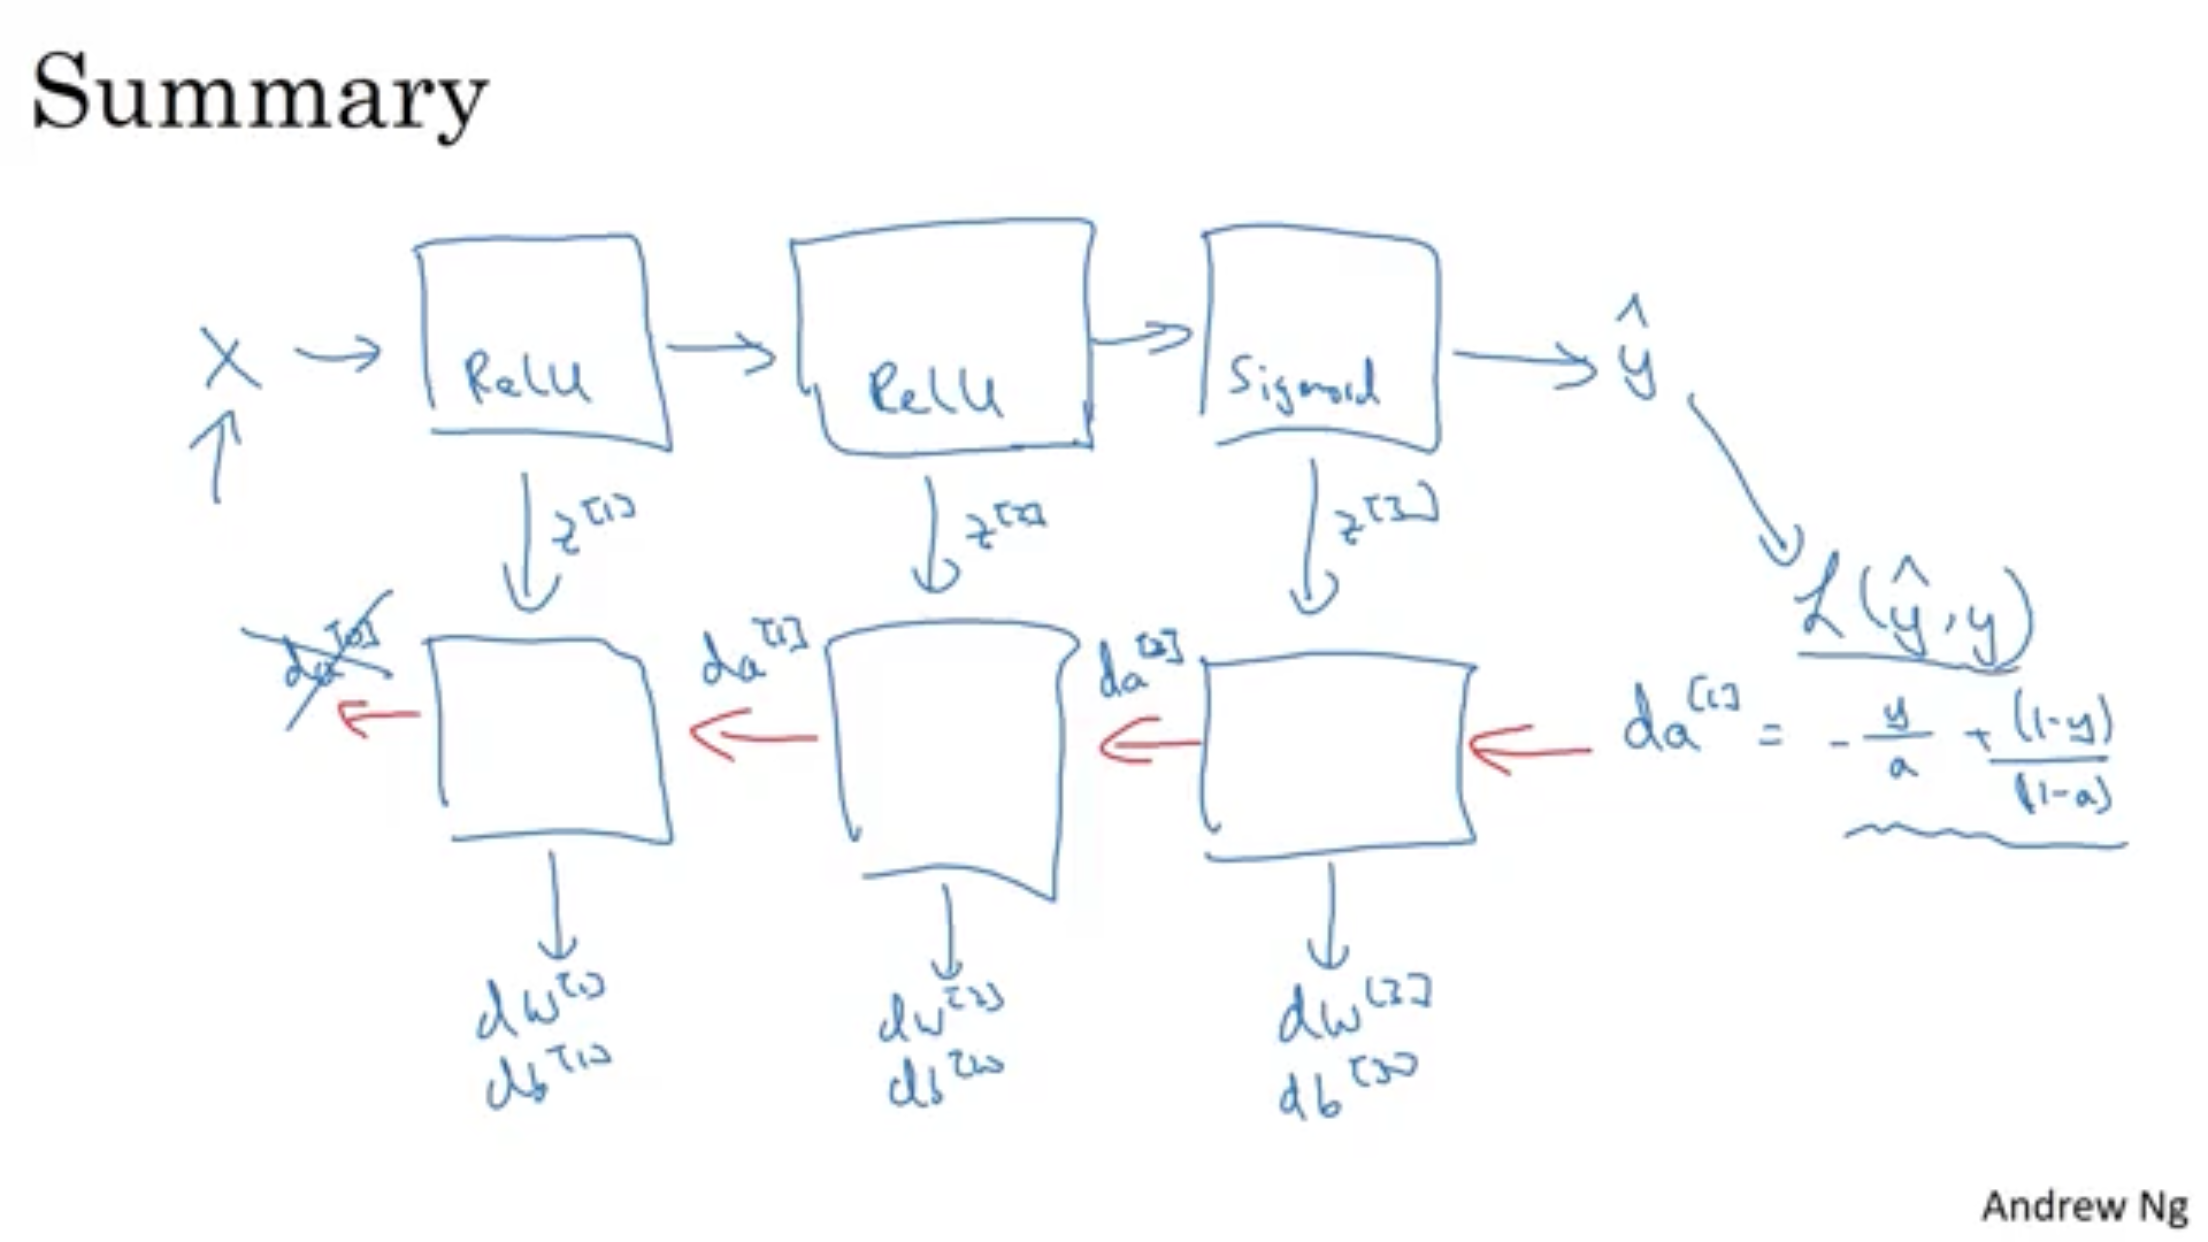 Summary
X → ReLU → ReLU → Sigmoid → ŷ
z^[1] z^[2] z^[3]
L(ŷ, y)
da^[0] da^[1] da^[2] da^[l] = - y/a + (1-y)/(1-a)
dw^[1] dw^[2] dw^[3]
db^[1] db^[2] db^[3]
Andrew Ng